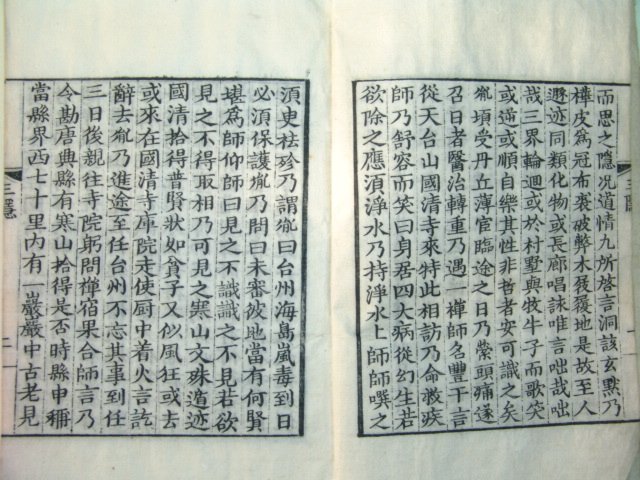 而思之隱況道情凡所啓言洞該玄默乃
樺皮爲冠布裘破弊木屐履地是故至人
遯迹同類化物或長廊唱詠唯言咄哉咄
哉三界輪迴或於村墅與牧牛子而歌笑
或逆或順自樂其性非哲者安可識之矣
胤頃受丹丘薄宦臨途之日乃縈頭痛遂
召日者醫治轉重乃遇一禪師名豐干言
從天台山國清寺來特此相訪乃命救疾
師乃舒容而笑曰身居四大病從幻生若
欲除之應須淨水乃持淨水上師師噀之
須史祛殄乃謂胤曰台州海島嵐毒到日
必須保護胤乃問曰未審彼地當有何賢
堪爲師仰師曰見之不識識之不見若欲
見之不得取相乃可見之寒山文殊遁迹
國清拾得普賢狀如貧子又似風狂或去
或來在國清寺庫院走使厨中着火言訖
辭去胤乃進途至任台州不忘其事到任
三日後親往寺院躬問禪宿果合師言乃
令勘唐興縣有寒山拾得是否時縣申稱
當縣界西七十里內有一巖巖中古老見
三隱
二
三隱
一